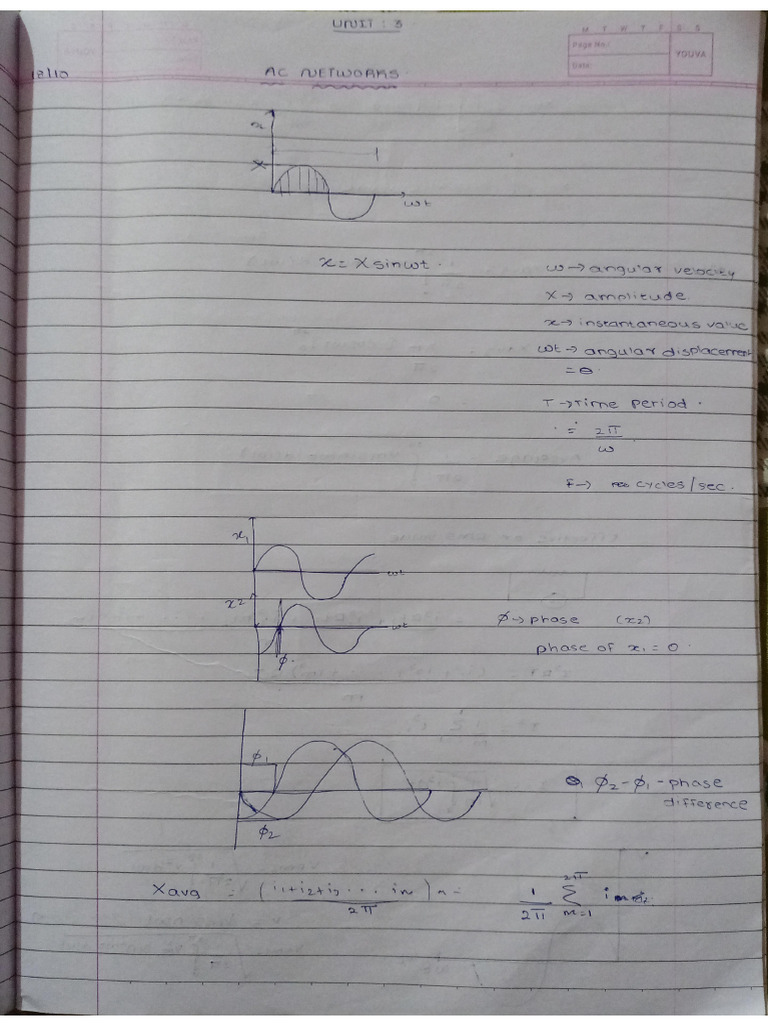 UNIT : 3
M T W T F S S
Page No.:
YOUVA
Date:
12/10
AC NETWORKS
x
X
ωt
x = X sinωt.
ω → angular velocity
X → amplitude
x → instantaneous value
ωt → angular displacement
= θ
T → Time period.
= 2π/ω
F → cycles/sec.
x1
ωt
x2
ωt
φ → phase (x2)
φ.
phase of x1 = 0.
φ1
φ2 - φ1 - phase
difference
φ2
Xavg = (i1+i2+i3 .... in) /2π = 1/2π Σ
2π
m=1